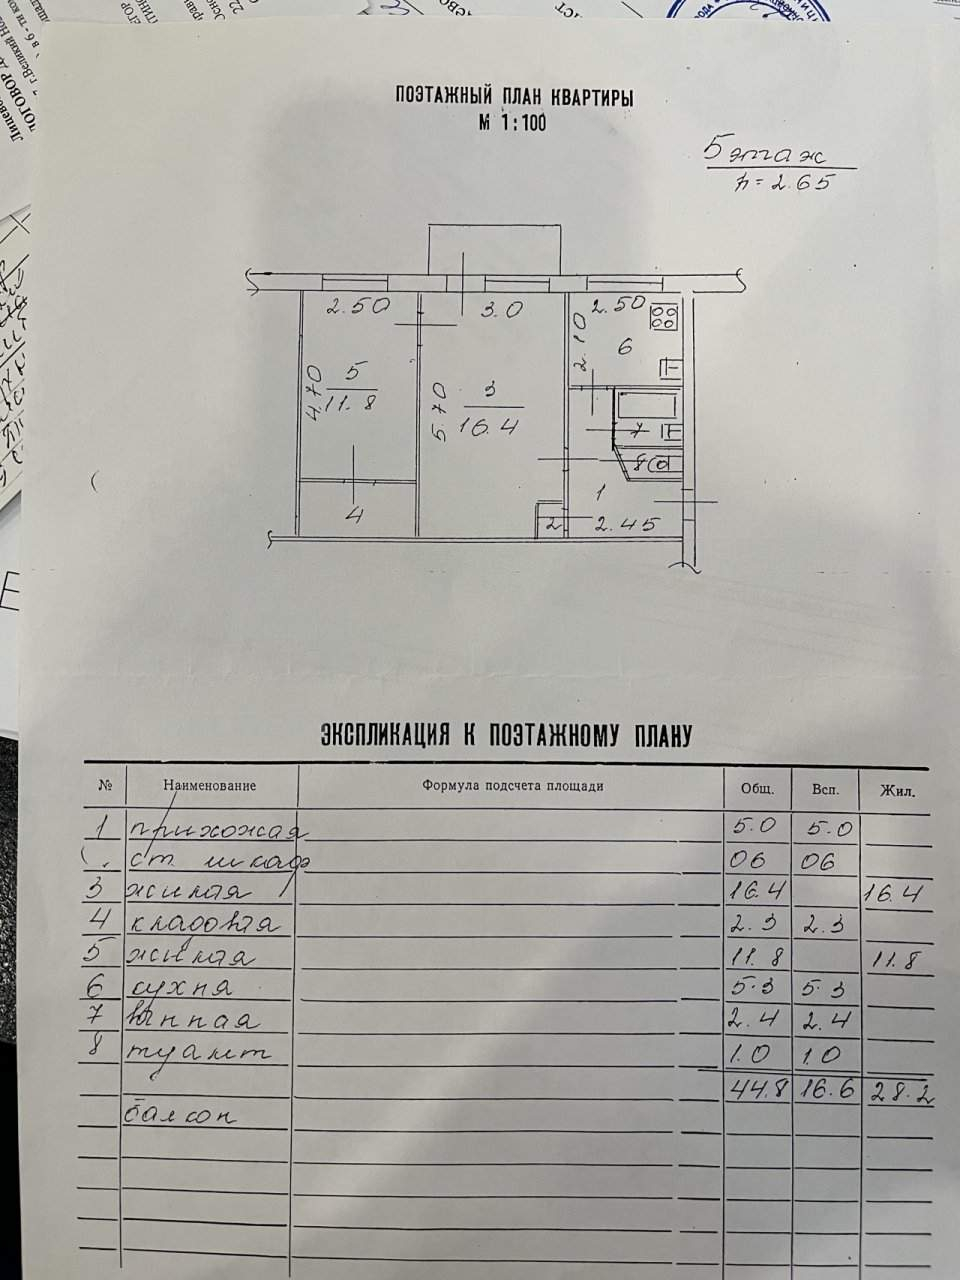 ПОЭТАЖНЫЙ ПЛАН КВАРТИРЫ
М 1:100
5 этаж
h = 2.65
2.50 3.0 2.50
2.10
6
4.70 5 5.70 3
11.8 16.4
7
8
1
4 2 2.45
ЭКСПЛИКАЦИЯ К ПОЭТАЖНОМУ ПЛАНУ
№ Наименование Формула подсчета площади Общ. Всп. Жил.
1 прихожая 5.0 5.0
ст. шкаф 06 06
3 жилая 16.4 16.4
4 кладовая 2.3 2.3
5 жилая 11.8 11.8
6 кухня 5.3 5.3
7 ванная 2.4 2.4
8 туалет 1.0 1.0
44.8 16.6 28.2
балкон